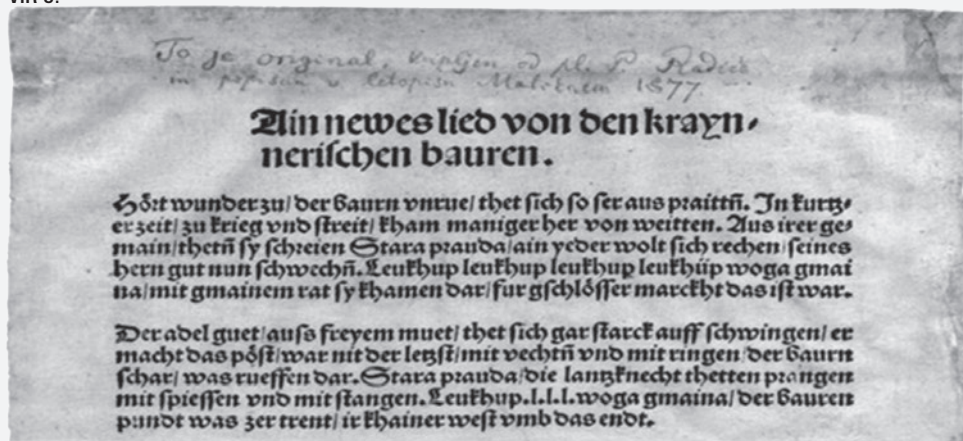 To je original, kupljen od pl. P. Radics
in popisan v letopisu Matičnem 1877.
Ain newes lied von den krayn⸗
nerischen bauren.
Hört wunder zu/ der baurn vnrue/ thet sich so ser aus praittn̄. In kurtz⸗
er zeit/ zu krieg vnd streit/ kham maniger her von weitten. Aus irer ge⸗
main/ thetn̄ sy schreien Stara prauda/ ain yeder wolt sich rechen/ seines
hern gut nun schwechn̄. Leukhup leukhup leukhup leukhüp woga gmai
na/ mit gmainem rat sy khamen dar/ fur gschlösser marckht das ist war.
Der adel guet/ auss freyem muet/ thet sich gar starck auff schwingen/ er
macht das pöst/ war nit der letzst/ mit vechtn̄ vnd mit ringen/ der baurn
schar/ was rueffen dar. Stara prauda/ die lantzknecht thetten prangen
mit spiessen vnd mit stangen. Leukhup.l.l.l. woga gmaina/ der bauren
pundt was zer trent/ ir khainer west vmb das endt.